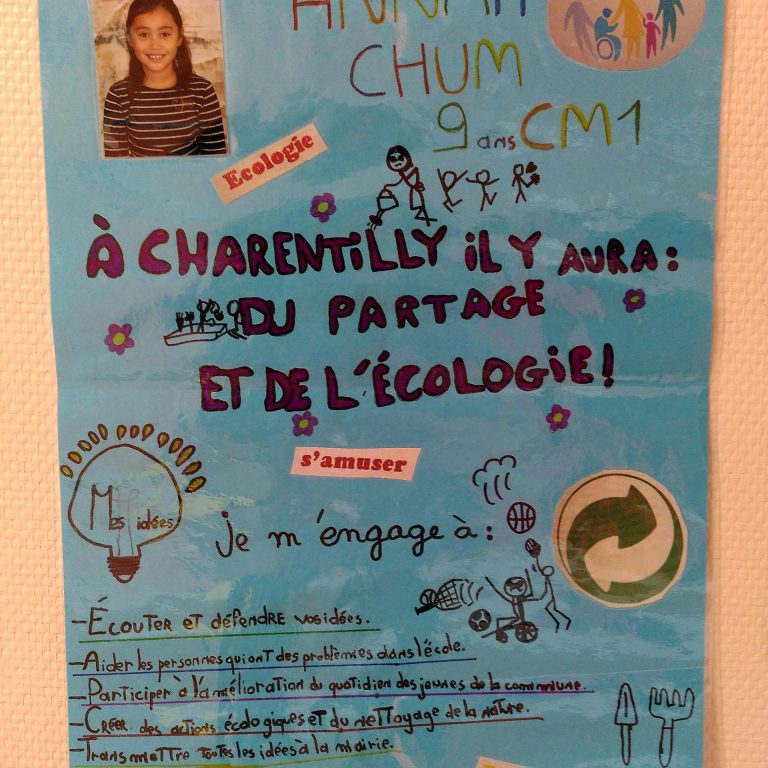 ANNAH
CHUM
9 ans CM1
Ecologie
À CHARENTILLY IL Y AURA :
DU PARTAGE
ET DE L'ÉCOLOGIE !
s'amuser
Mes idées
je m'engage à :
- Écouter et défendre vos idées.
- Aider les personnes qui ont des problèmes dans l'école.
- Participer à l'amélioration du quotidien des jeunes de la commune.
- Créer des actions écologiques et du nettoyage de la nature.
- Transmettre toutes les idées à la mairie.